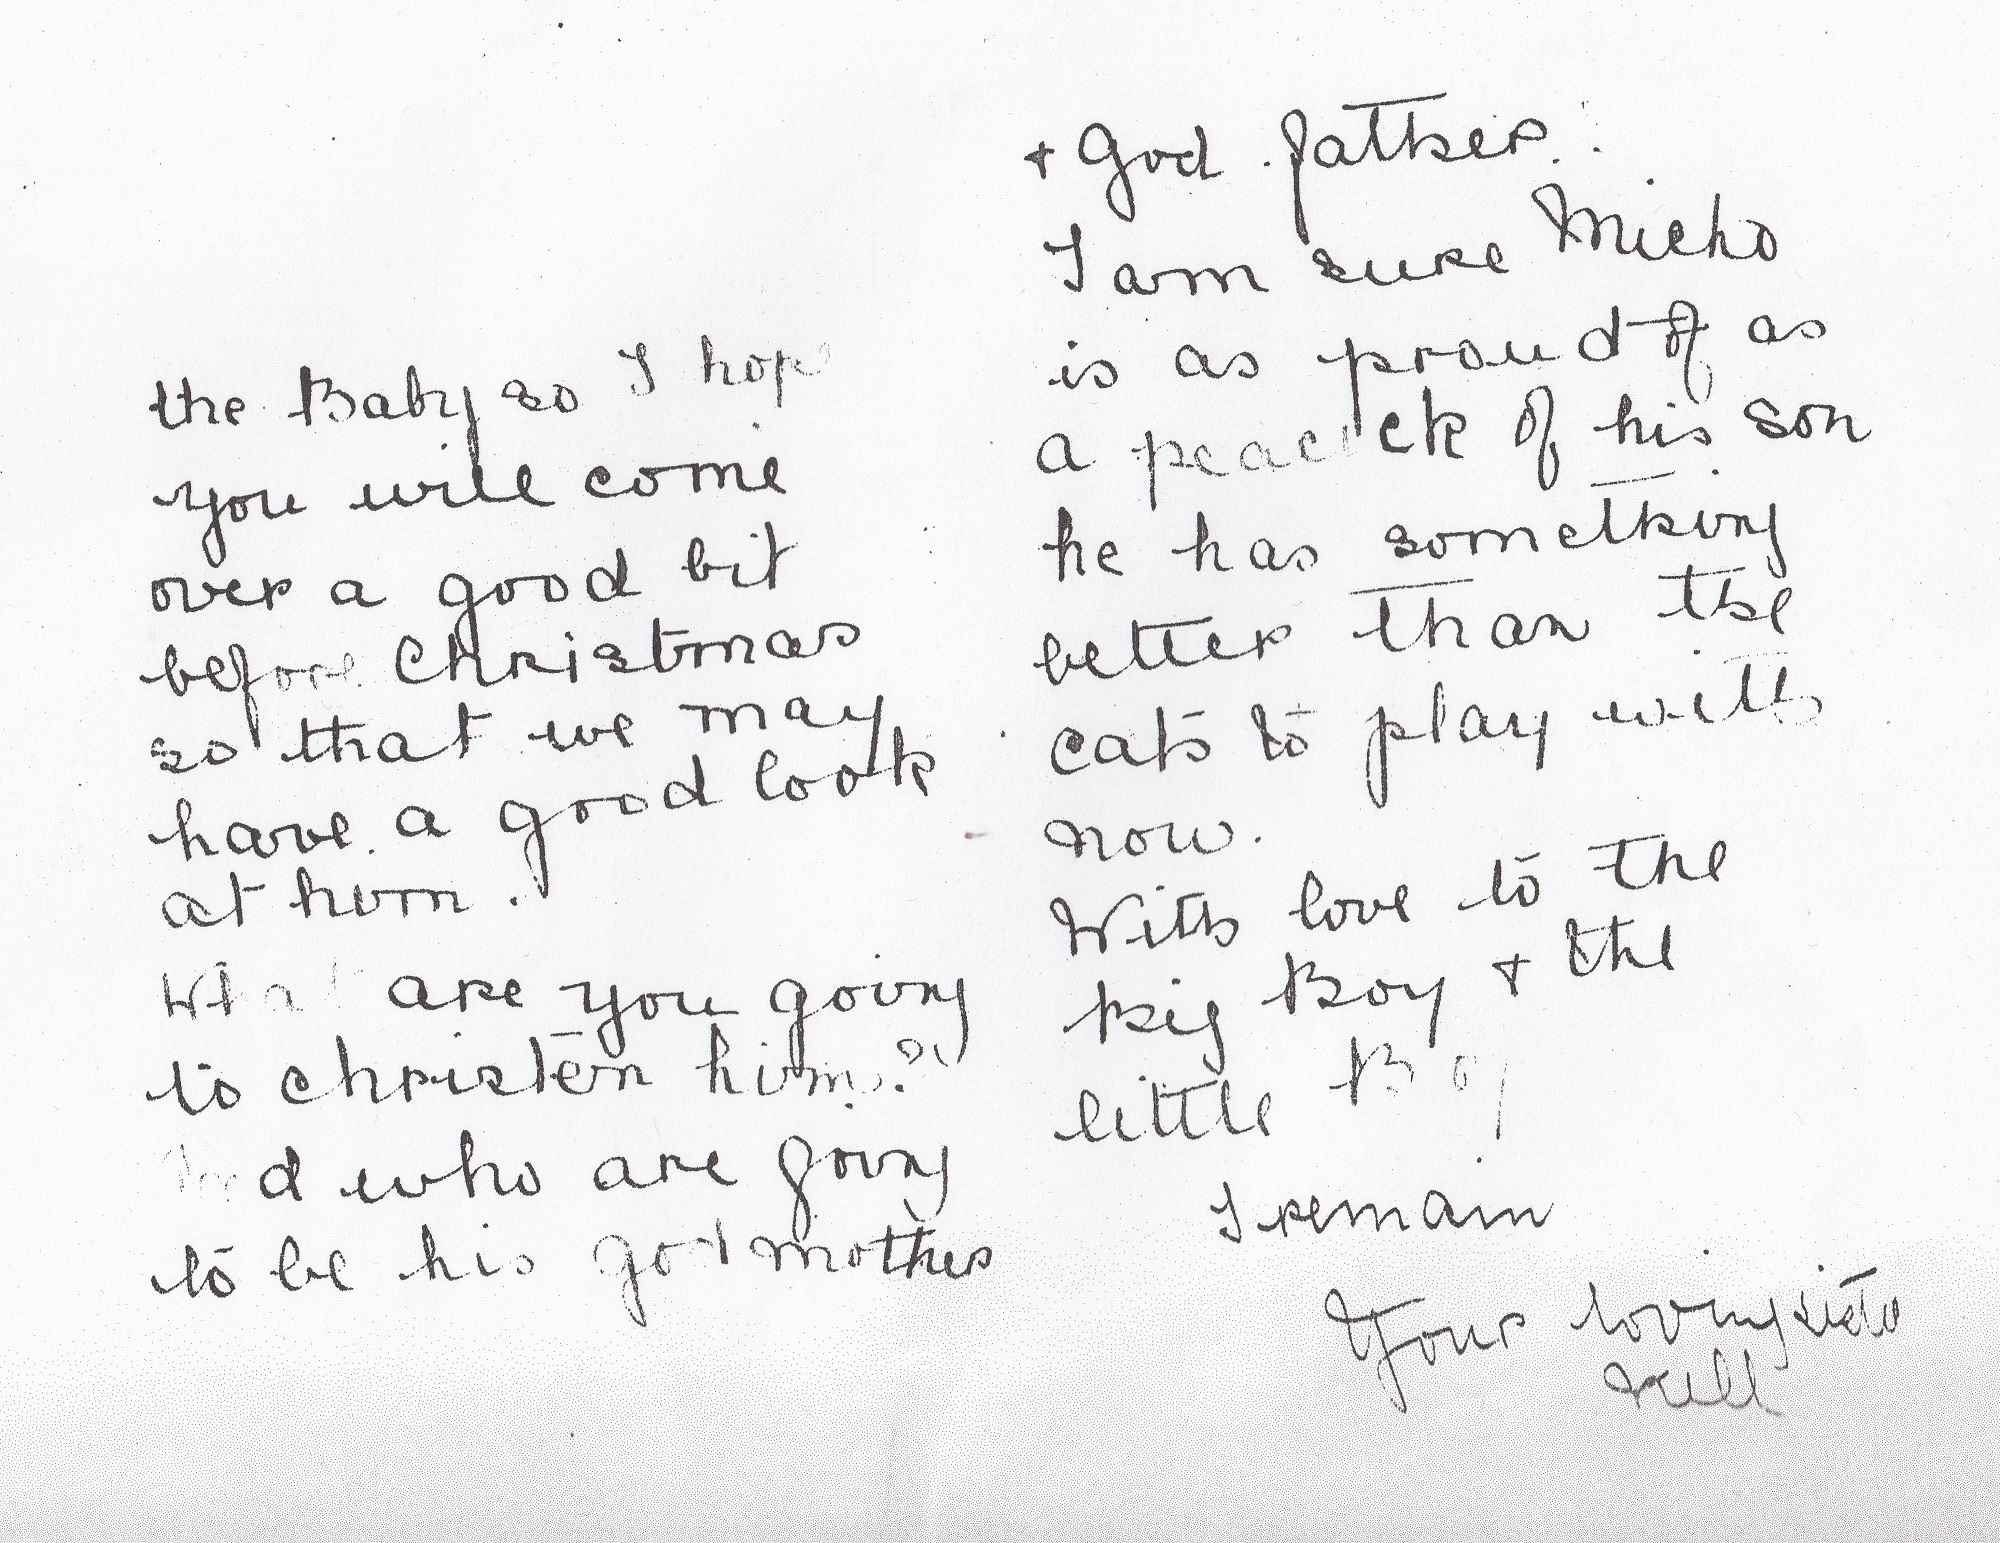 the Baby so I hope
you will come
over a good bit
before Christmas
so that we may
have a good look
at him.
What are you going
to christen him?
And who are going
to be his godmother
+ God father.
I am sure Micho
is as proud of as
a peacock of his son
he has something
better than the
cats to play with
now.
With love to the
Big Boy + the
little Boy
I remain
Your loving sister
Nell